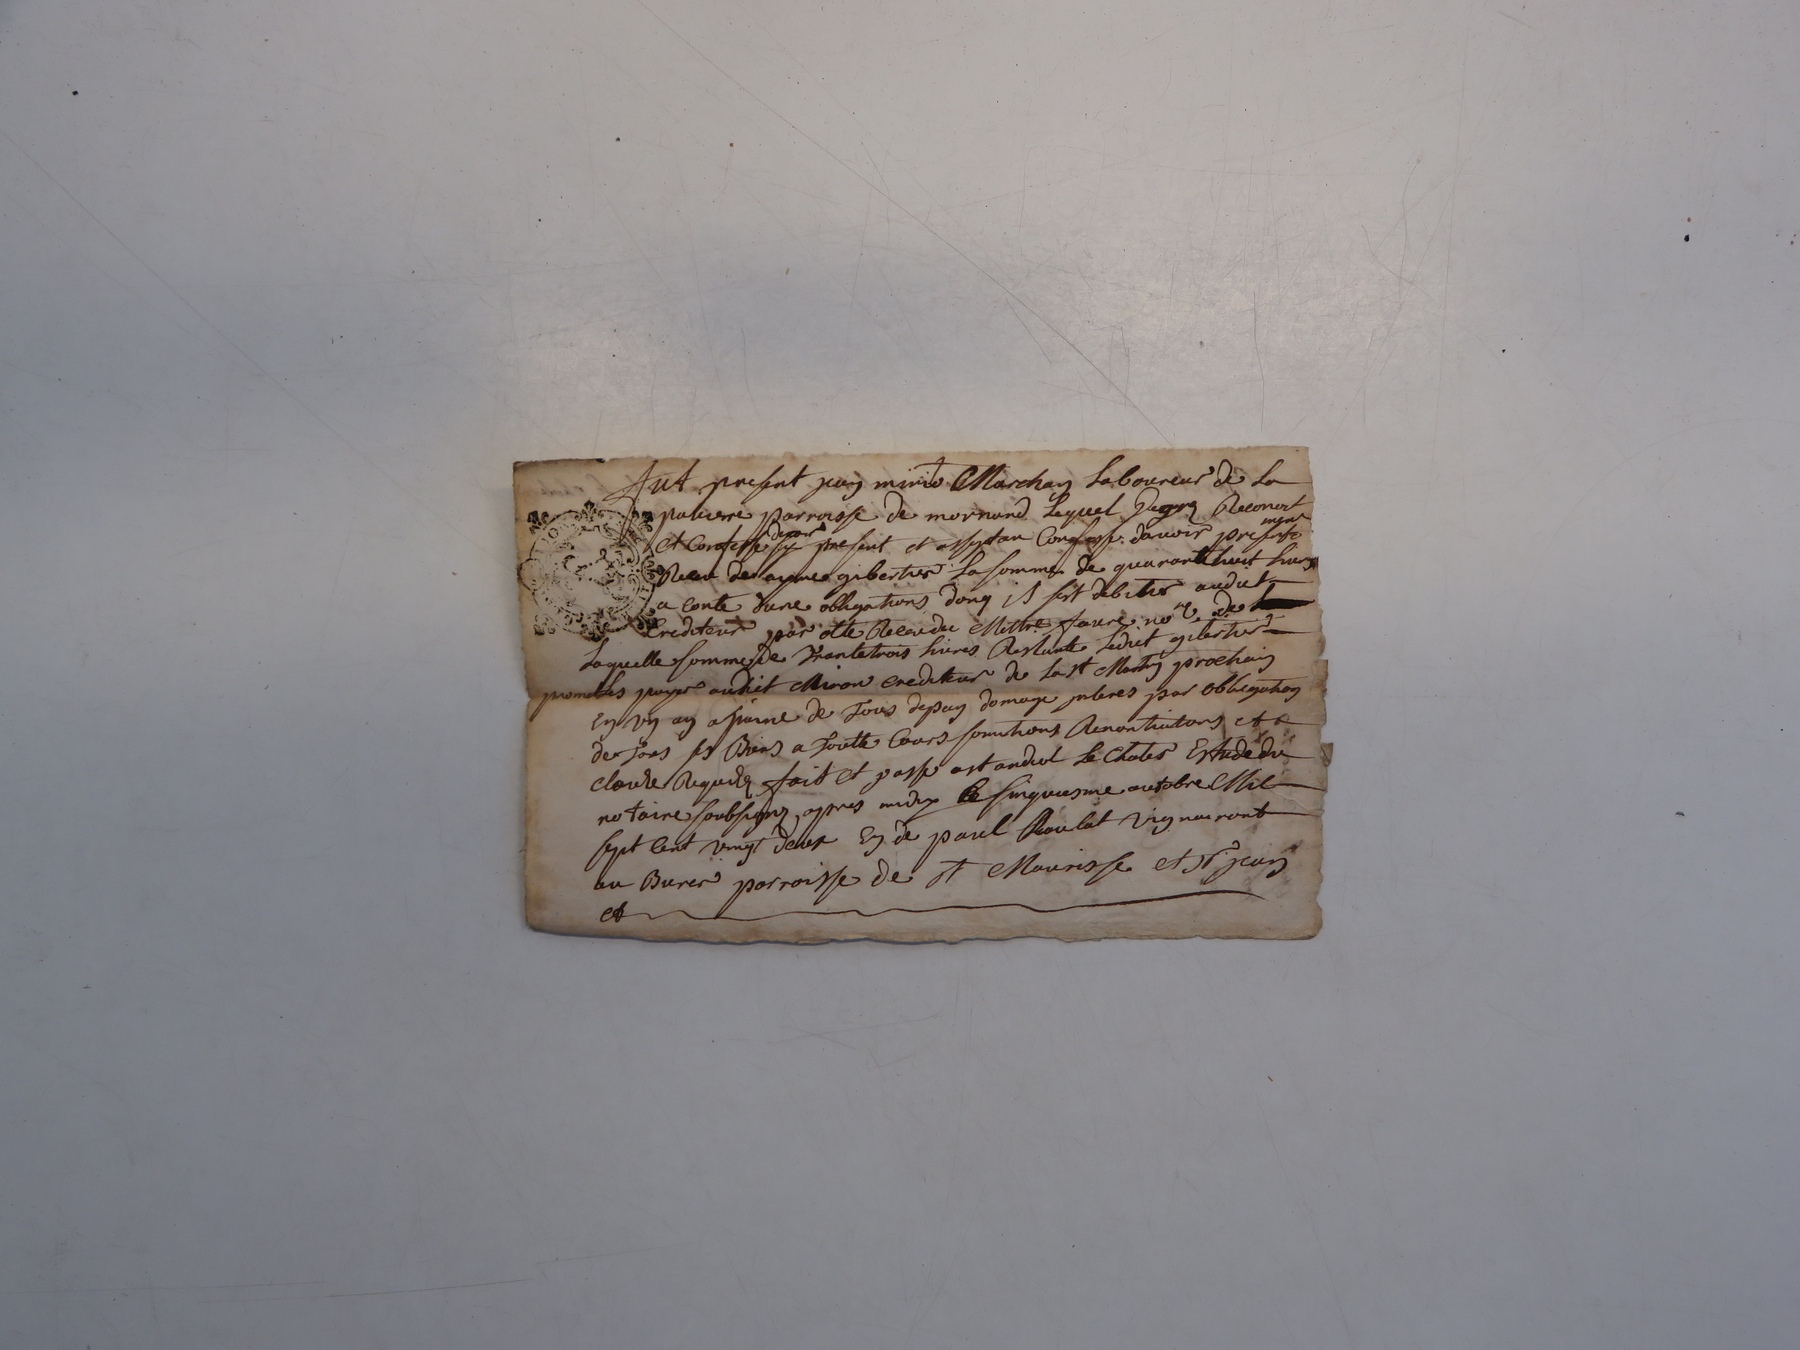 fut present jean miriō Marchan Laboureur de La
paluerre parroisse de mornand Lequel degrez Reconoit
et Confesse depar sy present et asseptan Confesse davoir presente
ment
Receu de aymé gibertier La somme de quarante huit livres
a conte dune obligations donq il sest debiter audit
Crediteur par Receudu Mettre faure nore de
Laquelle somme de trante trois livres Restante Ledit gibertier
promet Les payer audit Miron crediteur de La st Martin prochain
En un an a paine de tous depan domage interes par obligation
de tous ses Biens a toutte Cours somitions Renontiations et a
clauze Requize fait et passe a st andiol Le Chater Estude du
notaire soubsigne apres midy Le sinquiesme auctobre Mil
sept Cent vingt deux En de paul Roulat vigneront
au Burer parroisse de st Maurisse et sr jean
et